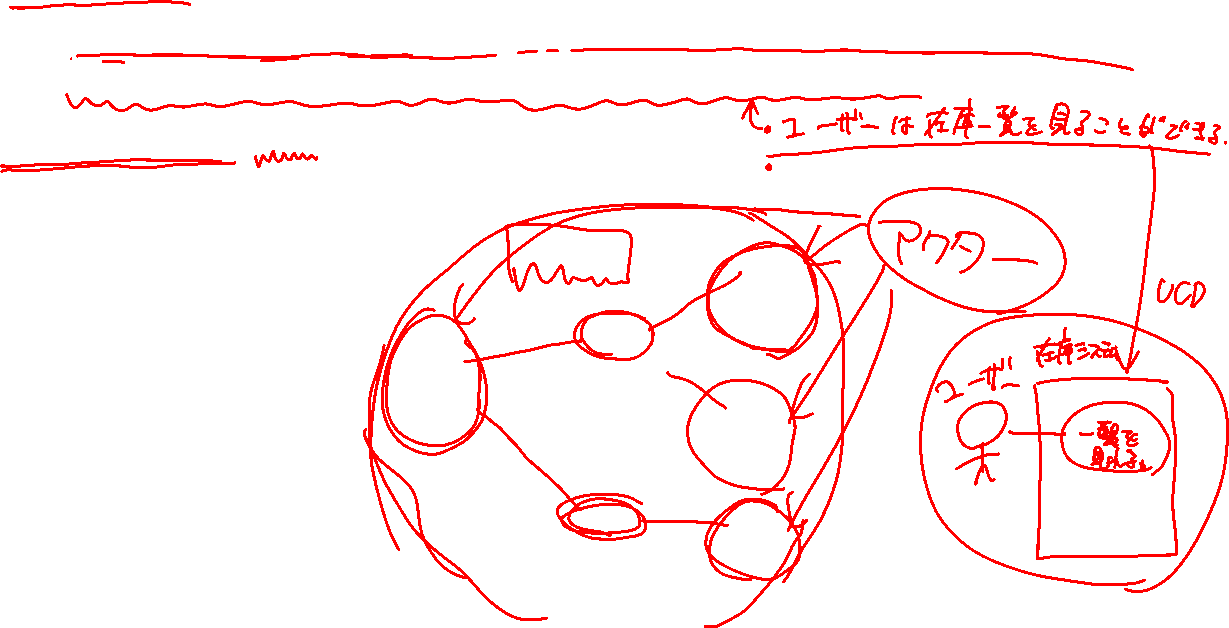 ・ユーザーは在庫一覧を見ることができる.
アクター
UCD
在庫システム
ユーザー
一覧を
見れる